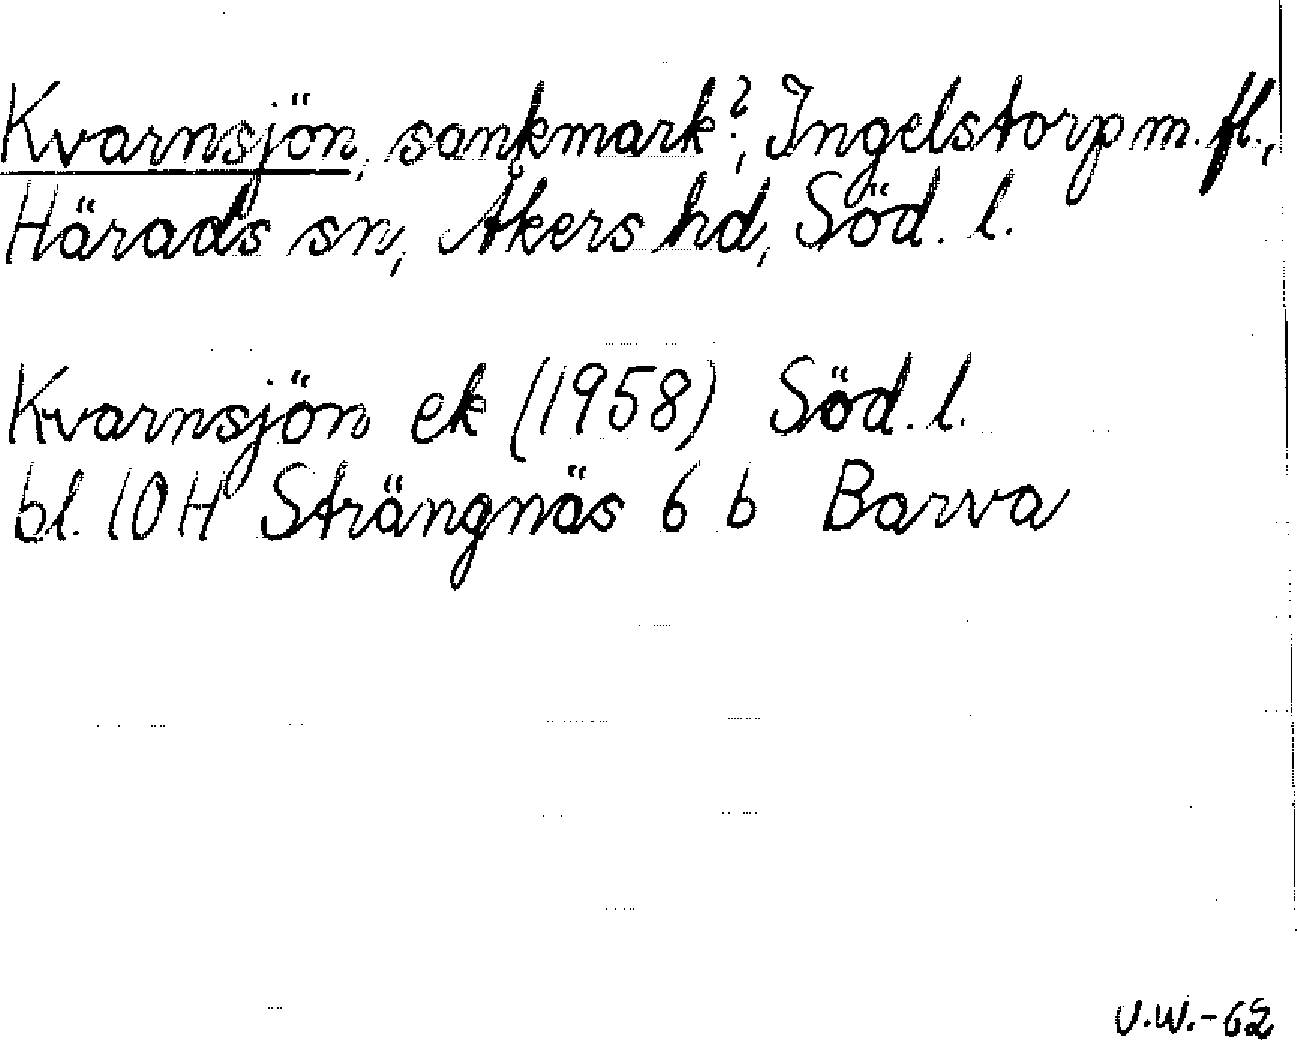 Kvarnsjön, sankmark?, Ingelstorp m. fl.,
Härads sn, Åkers hd, Söd. l.
Kvarnsjön ek (1958) Söd. l.
bl. 10 H Strängnäs 6 b Barva
U.W.-62